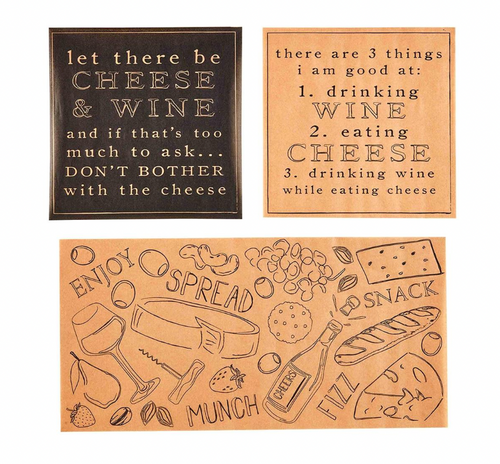 let there be
CHEESE
& WINE
and if that's too
much to ask...
DON'T BOTHER
with the cheese
there are 3 things
i am good at:
1. drinking
WINE
2. eating
CHEESE
3. drinking wine
while eating cheese
ENJOY
SPREAD
SNACK
CHEERS!
MUNCH
FIZZ